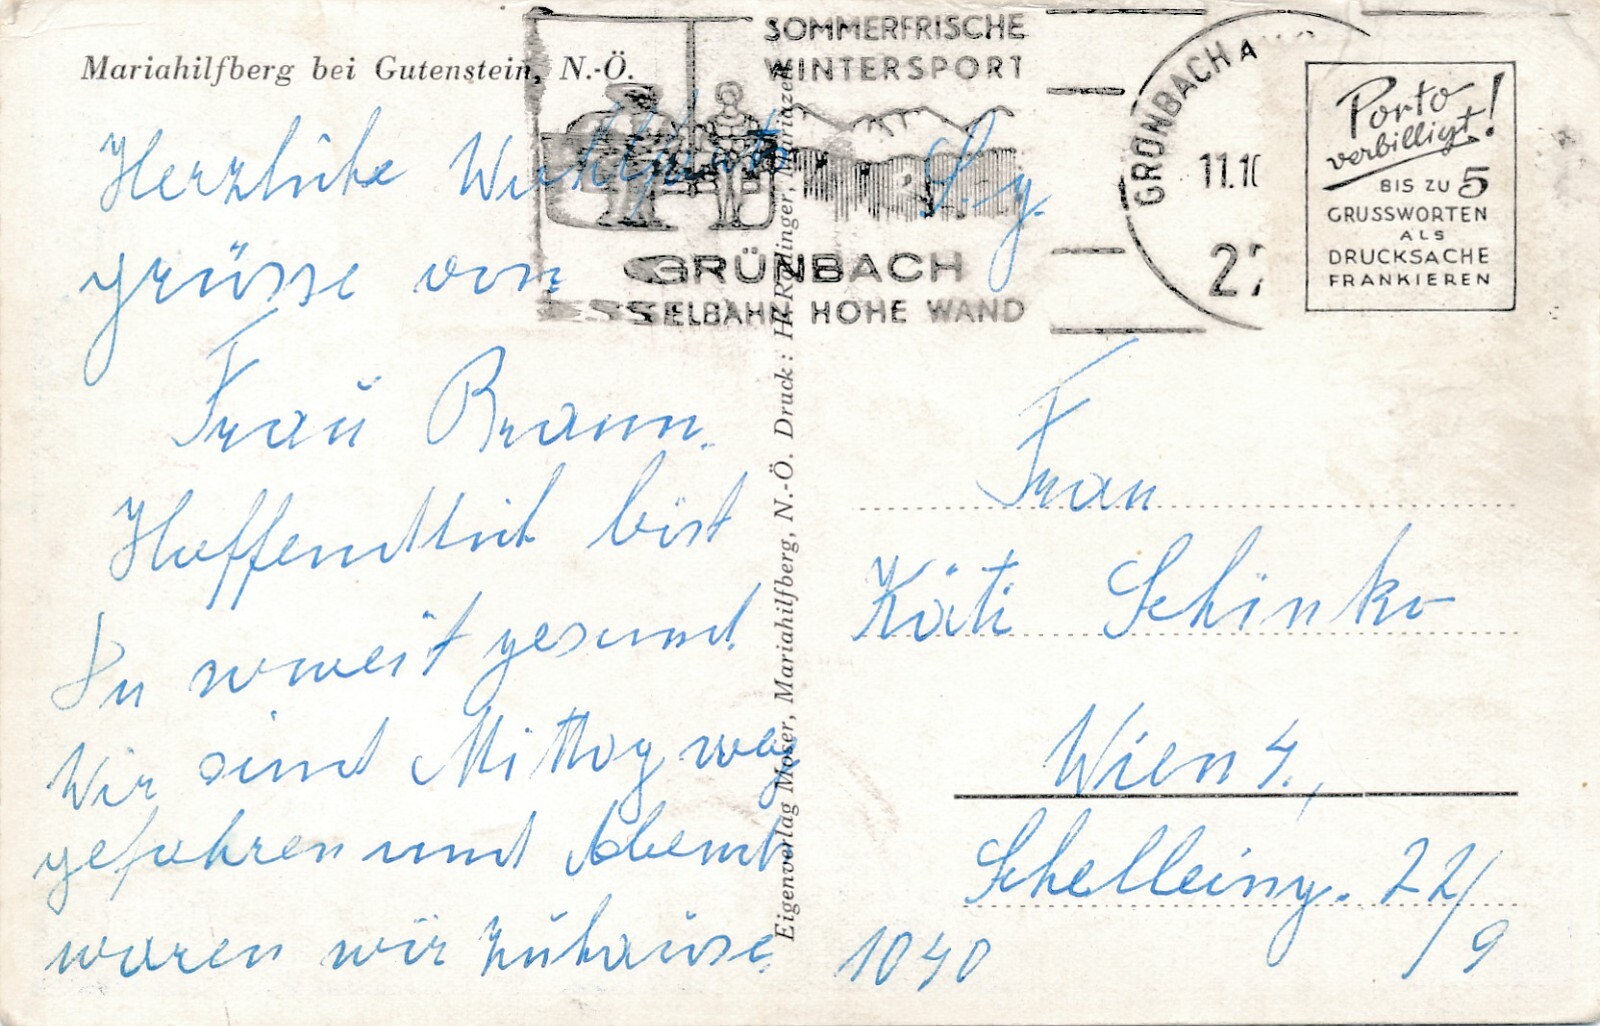 Mariahilfberg bei Gutenstein, N.-Ö.
Herzliche Wallfahrts
grüsse von
Frau Braun.
Hoffendlich bist
Du soweit gesund.
Wir sind Mittag weg
gefahren und Abend
waren wir zuhause.
SOMMERFRISCHE
WINTERSPORT
GRÜNBACH
SESSELBAHN HOHE WAND
GRÜNBACH A
11.10
27
Porto
verbilligt!
BIS ZU 5
GRUSSWORTEN
ALS
DRUCKSACHE
FRANKIEREN
Eigenverlag Moser, Mariahilfberg, N.-Ö. Druck: H. Radinger, Mariazell
S. g.
Frau
Käti Schinko
Wien 4.,
Schelleing. 22/9
1040